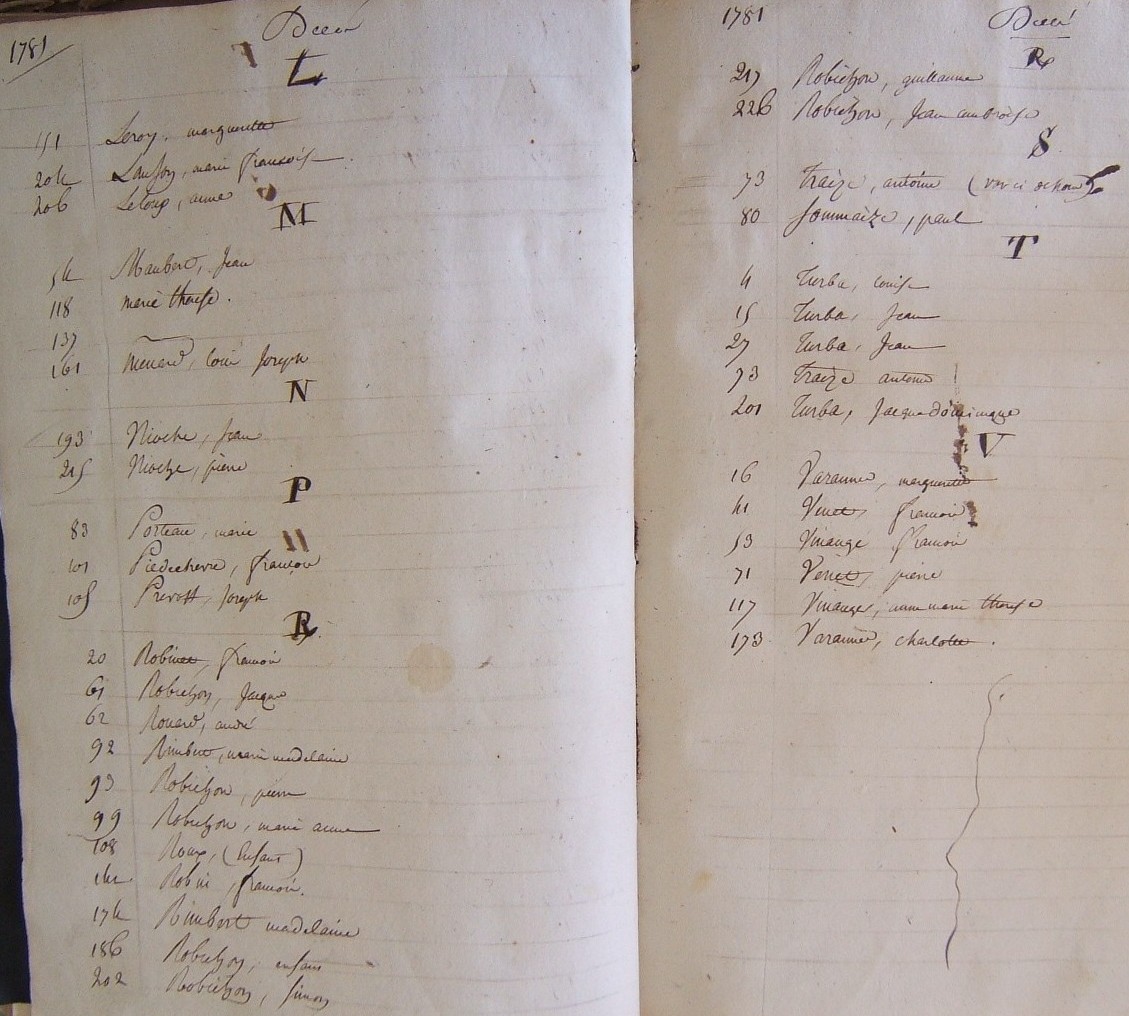 1781
Décès
L
151 Leroy, marguerite
204 marie françoise
206 Leloup, anne
M
54 Maubert, Jean
118 marie therese.
137
161 menard, louis Joseph
N
193 Nioche, Jean
215 Nioche, pierre
P
83 Porteau, marie
101 Piedechevre, françois
105 Prevost, Joseph
R
20 Robinet, françois
61 Robichon, Jacques
62 Rouard, andré
92 Rimbert, marie madelaine
93 Robichon, pierre
99 Robichon, marie anne
108 Roux, (Enfant)
142 Robin, françois.
174 Rimbert madelaine
186 Robichon, enfant
202 Robichon, simon
1781
Décès
R
217 Robichon, guillaume
226 Robichon, Jean ambroise
S
73 Traize, antoine
80 Sommaize, paul
T
4 Turba, louise
15 Turba, Jean
27 Turba, Jean
73 Traize antoine
201 Turba, Jacque dominique
V
16 Varanne, marguerite
41 Vinet, francois
53 Vinange francois
71 Venet, pierre
117 Vinange, anne marie therese
173 Varanne, charlotte.